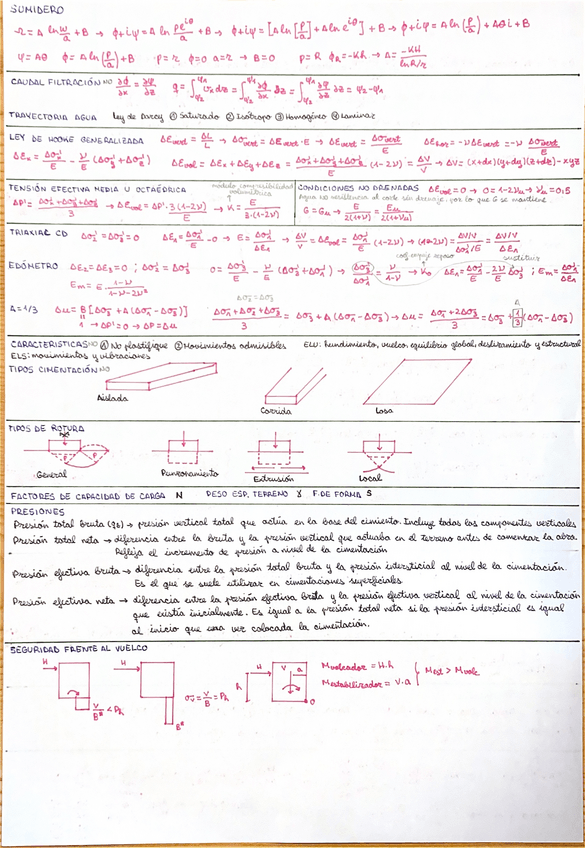 SUMIDERO
Ω = A ln w/a + B → ϕ+iψ = A ln ρe^iθ/a + B → ϕ+iψ = [A ln[ρ/a] + A ln e^iθ] + B → ϕ+iψ = A ln(ρ/a) + Aθi + B
ψ = Aθ ϕ = A ln(ρ/a) + B ρ=r ϕ=0 a=r → B=0 ρ=R ϕR=-KH → A = -KH/ln R/r
CAUDAL FILTRACIÓN NO ∂ϕ/∂x = ∂ψ/∂z q = ∫ vx dz = ∫ ∂ϕ/∂x dz = ∫ ∂ψ/∂z dz = ψ2-ψ1
TRAYECTORIA AGUA Ley de Darcy ① Saturado ② Isótropo ③ Homogéneo ④ Laminar
LEY DE HOOKE GENERALIZADA ΔEvert = ΔL/L → Δσvert = ΔEvert·E → ΔEvert = Δσvert/E ΔEhor = -νΔEvert = -ν Δσvert/E
ΔEx = Δσx'/E - ν/E (Δσy'+Δσz') ΔEvol = ΔEx + ΔEy + ΔEz = Δσx'+Δσy'+Δσz'/E (1-2ν) = ΔV/V → ΔV = (x+dx)(y+dy)(z+dz) - xyz
TENSIÓN EFECTIVA MEDIA U OCTAÉDRICA módulo compresibilidad volumétrica
ΔP' = Δσx'+Δσy'+Δσz'/3 → ΔEvol = ΔP'·3(1-2ν)/E → K = E/3·(1-2ν)
CONDICIONES NO DRENADAS ΔEvol = 0 → 0 = 1-2νu → νu = 0,5
Agua no resistencia al corte sin drenaje, por lo que G se mantiene
G = Gu → E/2(1+ν) = Eu/2(1+νu)
TRIAXIAL CD Δσ2' = Δσ3' = 0 ΔE1 = Δσ1'/E - 0 → E = Δσ1'/ΔE1 ΔV/V = ΔEvol = Δσ1'/E (1-2ν) → (1-2ν) = ΔV/V / Δσ1'/E = ΔV/V / ΔE1
coef empuje reposo sustituir
EDÓMETRO ΔE2 = ΔE3 = 0 ; Δσ2' = Δσ3' 0 = Δσ3'/E - ν/E (Δσ1'+Δσ3') → Δσ3'/Δσ1' = ν/1-ν → K0 ΔE1 = Δσ1'/E - 2ν/E Δσ3' ; Em = Δσ1'/ΔE1
Em = E 1-ν/1-ν-2ν²
Δσ2 = Δσ3
A = 1/3 Δu = B[Δσ3 + A(Δσ1-Δσ3)] Δσ1+Δσ2+Δσ3/3 = σ3 + A(Δσ1-Δσ3) → Δu = Δσ1+2Δσ3/3 = Δσ3 + 1/3 (Δσ1-Δσ3)
1 → ΔP'=0 → ΔP=Δu
CARACTERISTICAS NO ① No plastifique ② Movimientos admisibles ELU: hundimiento, vuelco, equilibrio global, deslizamiento y estructural
ELS: movimientos y vibraciones
TIPOS CIMENTACIÓN NO
Aislada
Corrida
Losa
TIPOS DE ROTURA
General
Punzonamiento
Extrusión
Local
FACTORES DE CAPACIDAD DE CARGA N PESO ESP. TERRENO γ F. DE FORMA S
PRESIONES
Presión total bruta (qb) → presión vertical total que actúa en la base del cimiento. Incluye todas las componentes verticales
Presión total neta → diferencia entre la bruta y la presión vertical que actuaba en el terreno antes de comenzar la obra.
Refleja el incremento de presión a nivel de la cimentación
Presión efectiva bruta → diferencia entre la presión total bruta y la presión intersticial al nivel de la cimentación.
Es el que se suele utilizar en cimentaciones superficiales
Presión efectiva neta → diferencia entre la presión efectiva bruta y la presión efectiva vertical al nivel de la cimentación
que existía inicialmente. Es igual a la presión total neta si la presión intersticial es igual
al inicio que una vez colocada la cimentación.
SEGURIDAD FRENTE AL VUELCO
H H H V a Mvolcador = H·h
h Mestabilizador = V·a Mest > Mvolc
V/B* < Ph σv = V/B = Ph O
B*